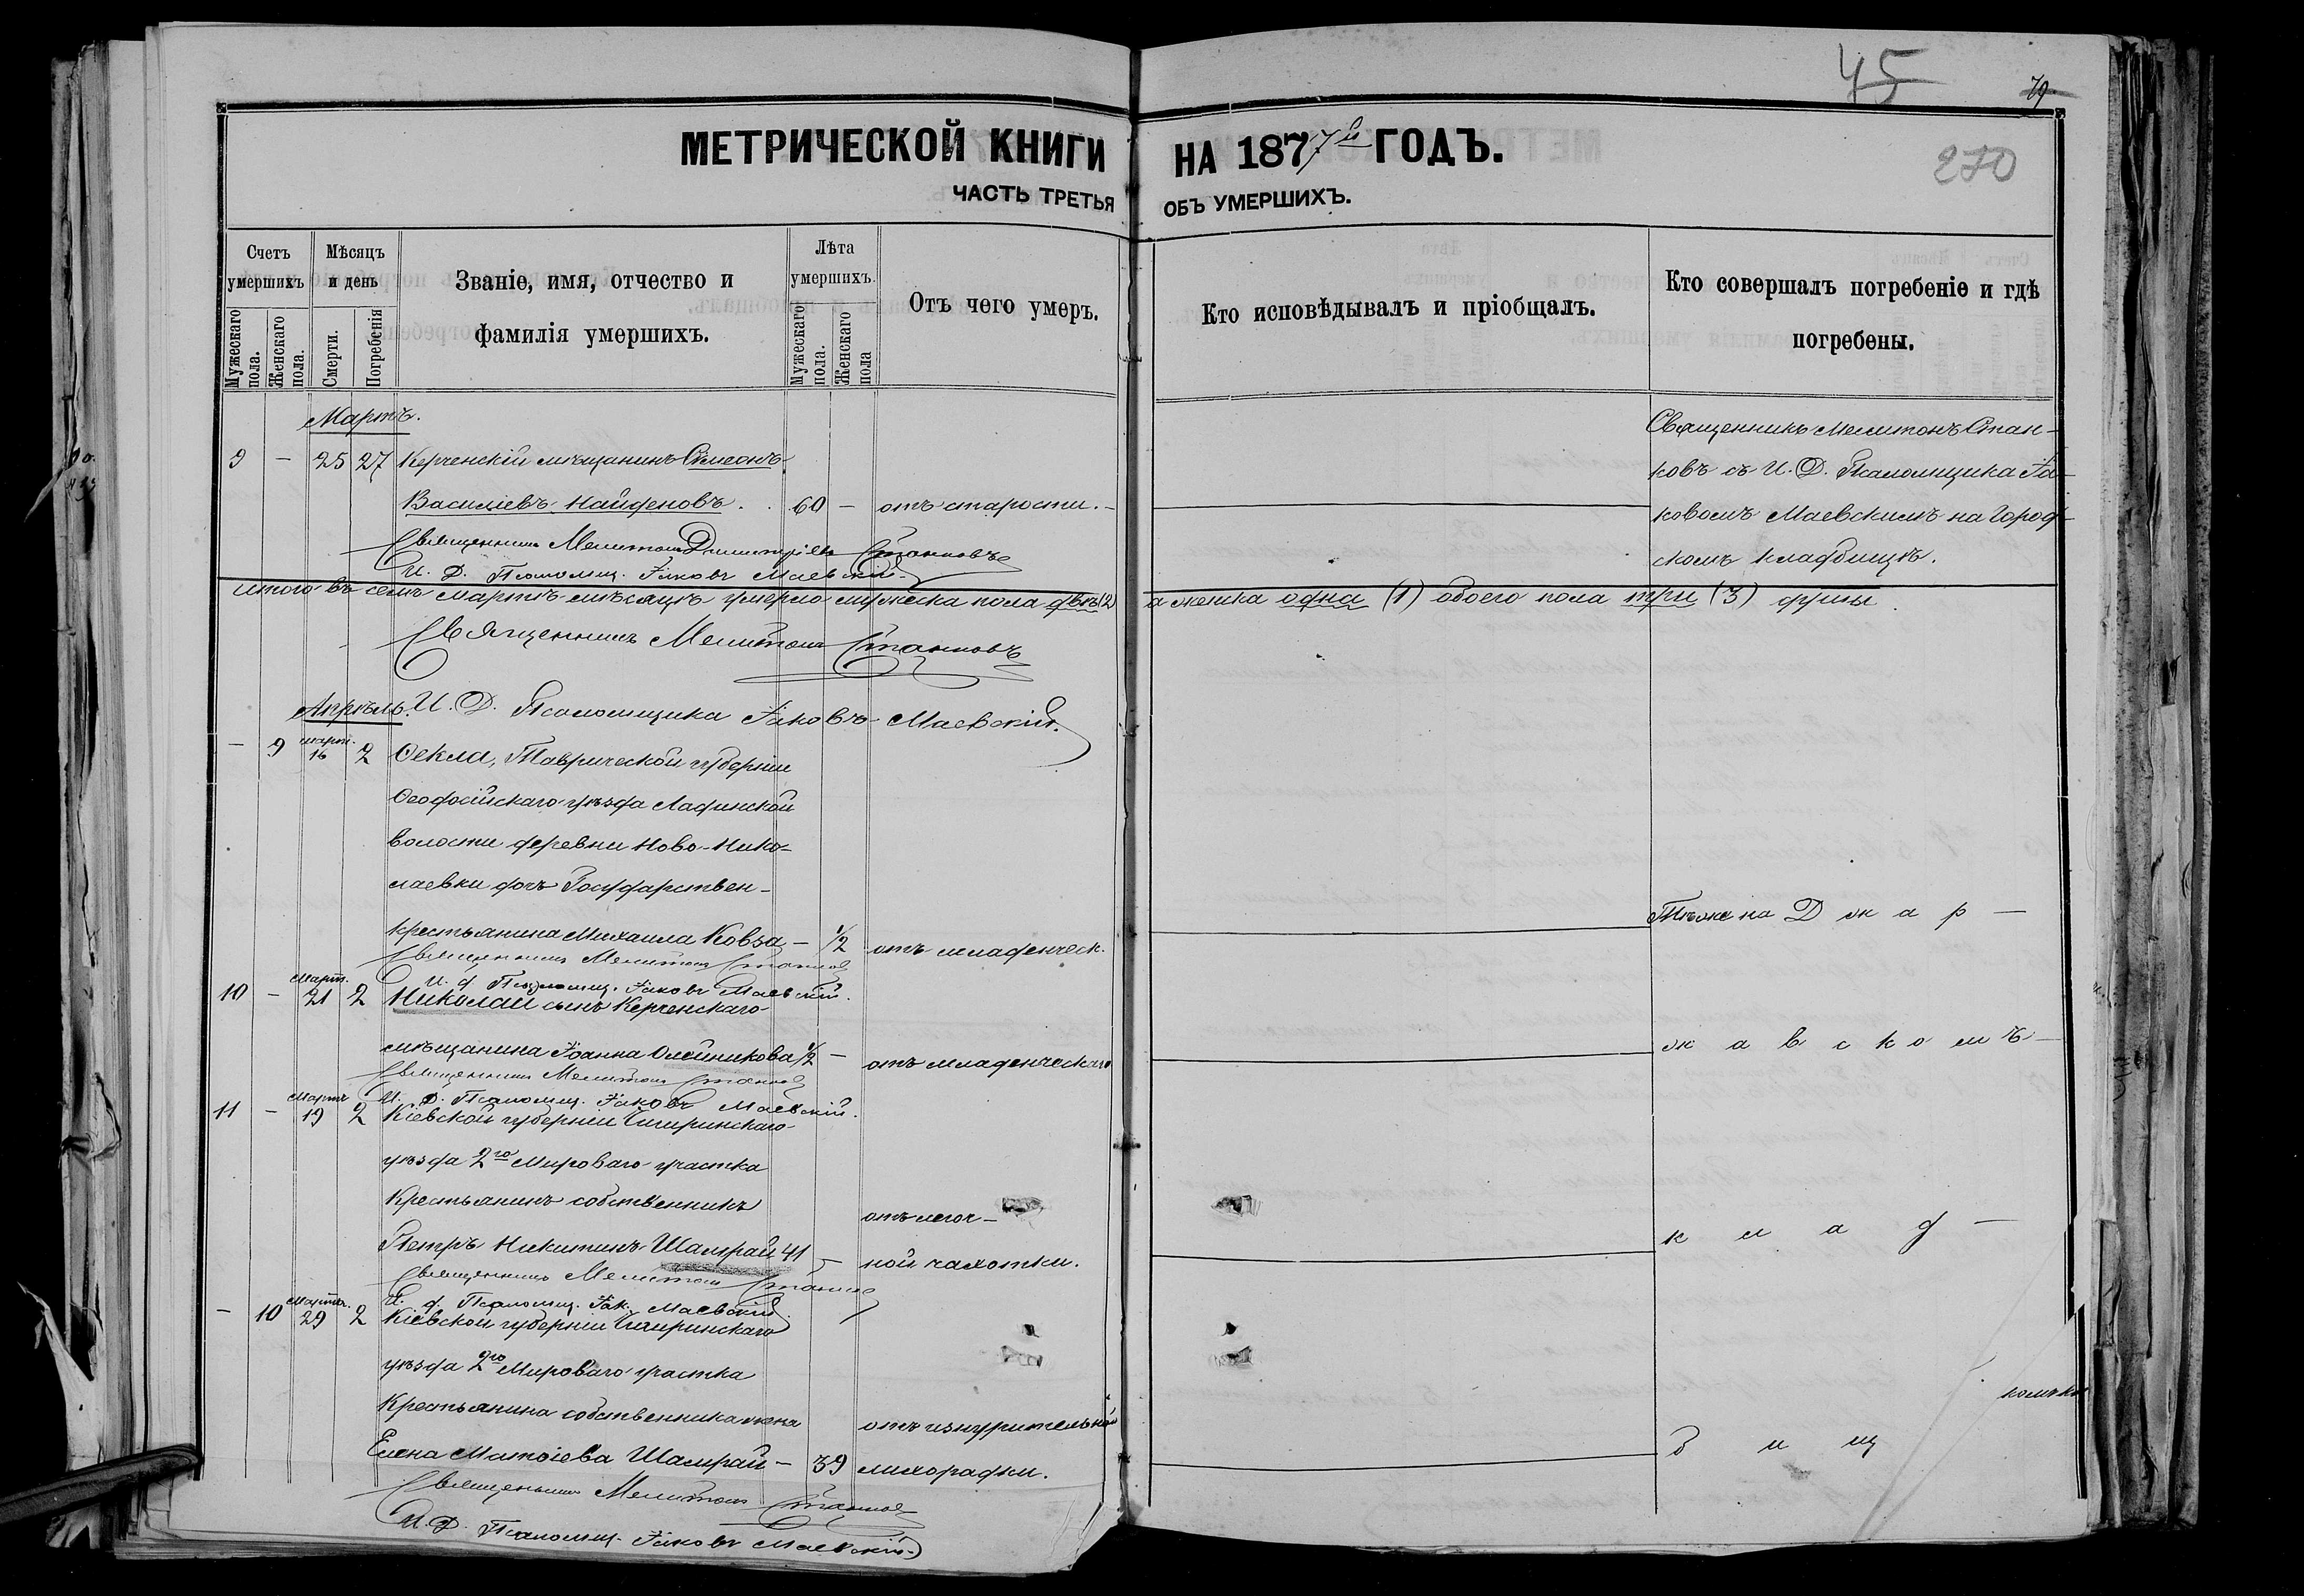 45
79
270
МЕТРИЧЕСКОЙ КНИГИ НА 1877й ГОДЪ.
ЧАСТЬ ТРЕТЬЯ ОБЪ УМЕРШИХЪ.
Счетъ умершихъ
Мужескаго пола.
Женскаго пола.
Мѣсяцъ и день
Смерти.
Погребенія
Званіе, имя, отчество и
фамилія умершихъ.
Лѣта умершихъ.
Мужескаго пола.
Женскаго пола
Отъ чего умеръ.
Кто исповѣдывалъ и пріобщалъ.
Кто совершалъ погребеніе и гдѣ
погребены.
Мартъ.
9 – 25 27 Керченскій мѣщанинъ Симеонъ
Василіевъ Найденовъ. 60 – отъ старости.
Священникъ Мелитонъ Стан-
ковъ съ И. Д. Псаломщика Іа-
ковомъ Маевскимъ на Город-
скомъ кладбищѣ.
Священникъ Мелитонъ Димитріевъ Станковъ
И. Д. Псаломщ. Іаковъ Маевскій.
Итого въ семъ Мартѣ мѣсяцѣ умерло мужеска пола два (2) а женска одна (1) обоего пола три (3) души.
Священникъ Мелитонъ Станковъ
И. Д. Псаломщика Іаковъ Маевскій.
Апрѣль.
– 9 март. 16 2 Ѳекла, Таврической губерніи
Ѳеодосійскаго уѣзда Ладинской
волости деревни Ново-Нико-
лаевки дочь Государствен-
крестьянина Михаила Ковза – 1/2 отъ младенческ.
Тѣже на Д ж а р –
Священникъ Мелитонъ Станков
И. д. Псаломщ. Іаковъ Маевскій.
10 – Март. 21 2 Николай сынъ Керченскаго
мѣщанина Іоанна Олейникова 1/2 – отъ младенческаго
ж а в с к о м ъ –
Священникъ Мелитонъ Станков
И. Д. Псаломщ. Іаковъ Маевскій.
11 – Мартъ 19 2 Кіевской губерніи Чигиринскаго
уѣзда 2го Мироваго участка
Крестьянинъ собственникъ
отъ легоч-
Петръ Никитинъ Шамрай 41 – ной чахотки.
к л а д –
Священникъ Мелитонъ Станков
И. д. Псаломщ. Іак. Маевскій
– 10 Март. 29 2 Кіевской губерніи Чигиринскаго
уѣзда 2го Мироваго участка
Крестьянина собственника жена
отъ изнурительной
Елена Матѳіева Шамрай – 39 лихорадки.
б и щ
Священникъ Мелитонъ Станков
И. Д. Псаломщ. Іаковъ Маевскій